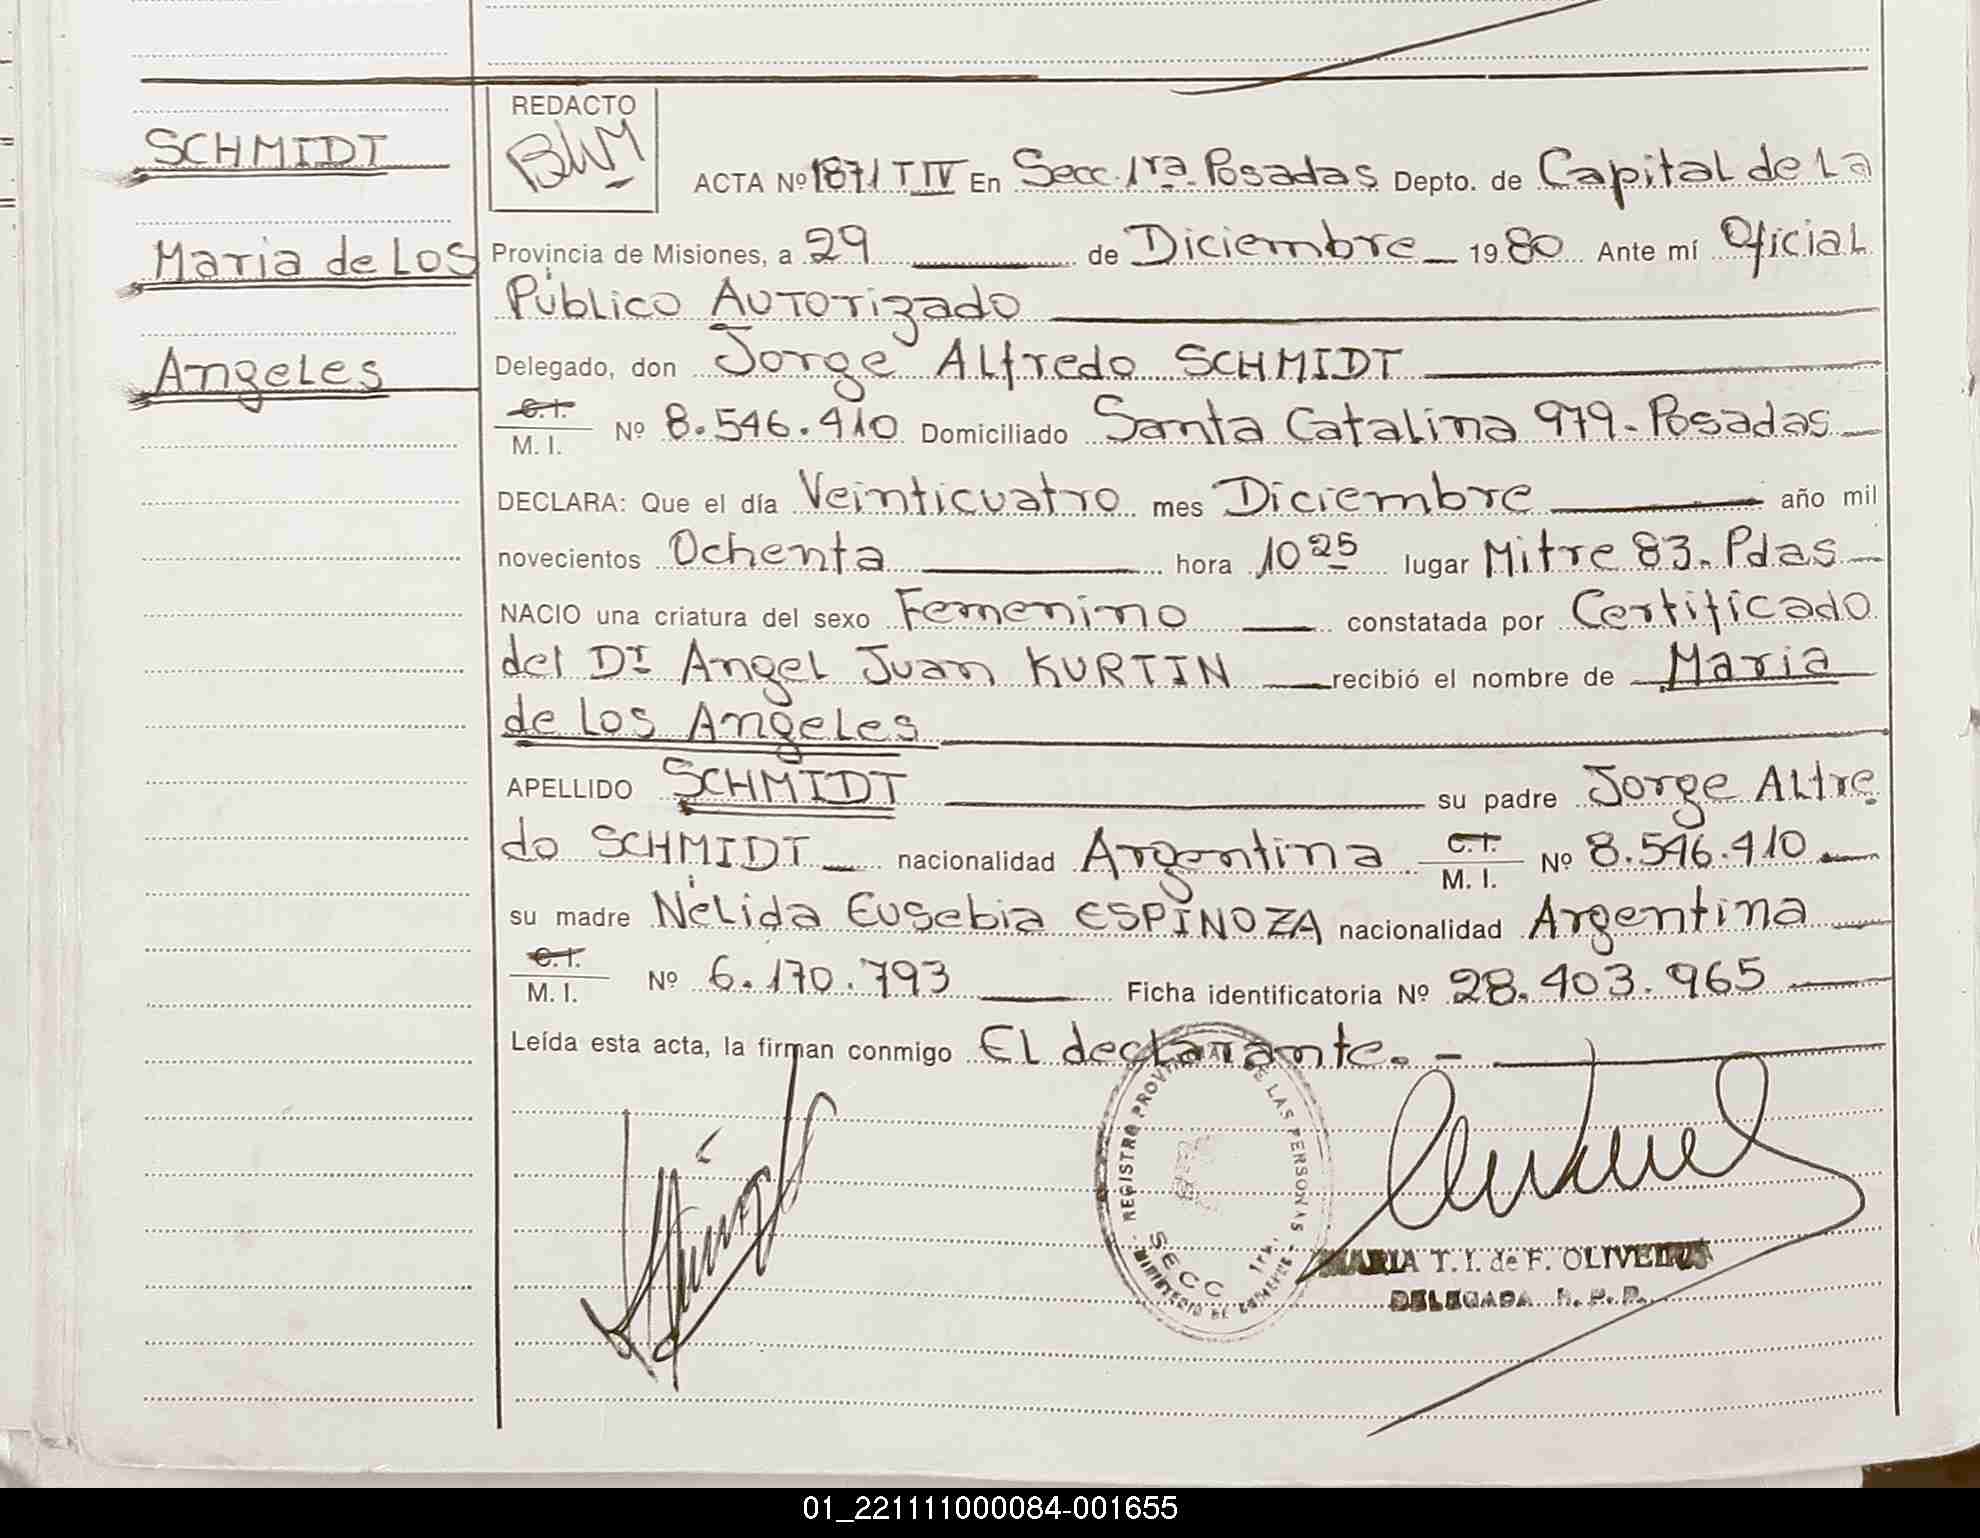 SCHMIDT
Maria de Los
Angeles
REDACTO
BWM
ACTA Nº 1871 T IV En Secc. 1ra. Posadas Depto. de Capital de La
Provincia de Misiones, a 29 de Diciembre 1980 Ante mí Oficial
Público Autorizado
Delegado, don Jorge Alfredo SCHMIDT
C.I.
M. I. Nº 8.546.410 Domiciliado Santa Catalina 979. Posadas
DECLARA: Que el día Veinticuatro mes Diciembre año mil
novecientos Ochenta hora 10 25 lugar Mitre 83. Pdas
NACIO una criatura del sexo Femenino constatada por Certificado
del Dr Angel Juan KURTIN recibió el nombre de Maria
de los Angeles
APELLIDO SCHMIDT su padre Jorge Alfre
do SCHMIDT nacionalidad Argentina C.I. M. I. Nº 8.546.410
su madre Nélida Eusebia ESPINOZA nacionalidad Argentina
C.I.
M. I. Nº 6.170.793 Ficha identificatoria Nº 28.403.965
Leída esta acta, la firman conmigo El declarante. -
REGISTRO PROVINCIAL DE LAS PERSONAS
SECC 1ra.
MINISTERIO DE GOBIERNO
MARIA T. I. de F. OLIVEIRA
DELEGADA R. P. P.
01_221111000084-001655